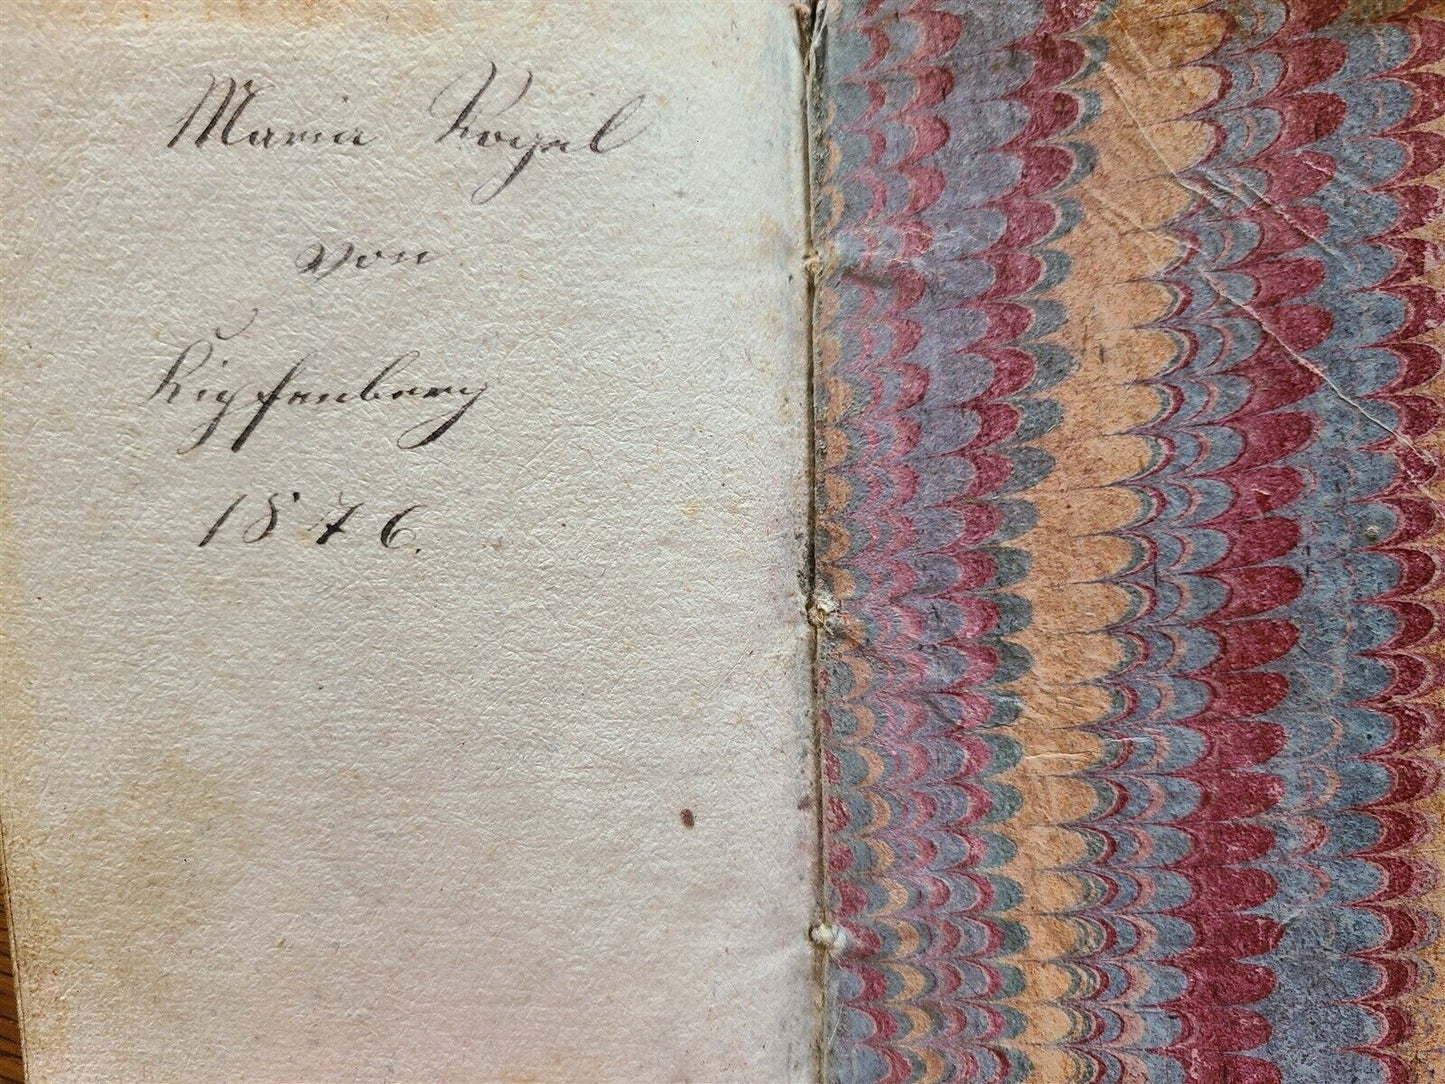 Maria Kogel
von
Kipfenberg
1876.